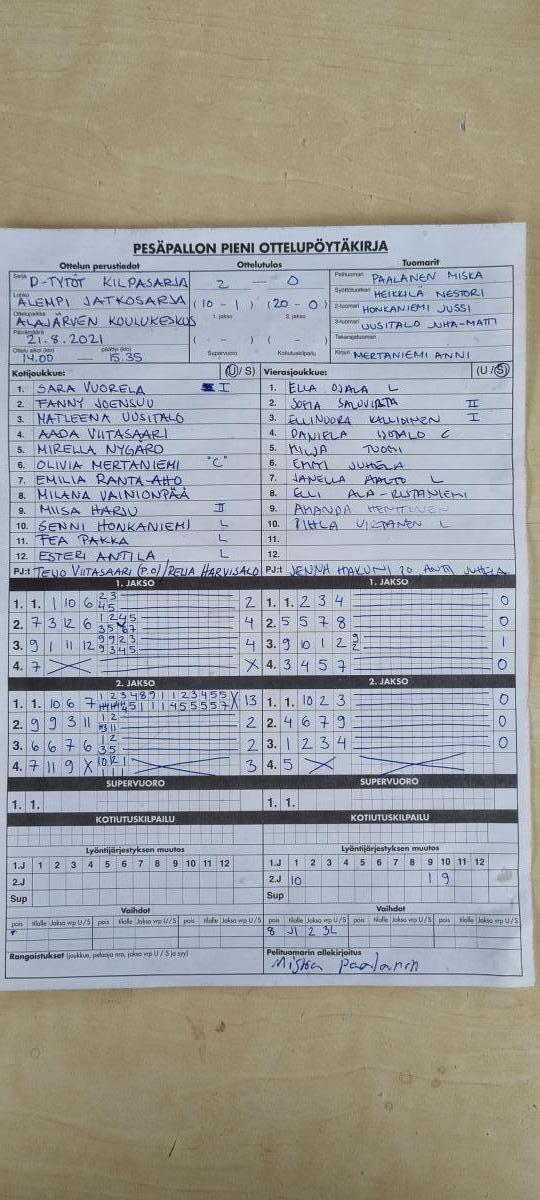 PESÄPALLON PIENI OTTELUPÖYTÄKIRJA
Ottelun perustiedot Ottelutulos Tuomarit
Sarja D-TYTÖT KILPASARJA 2 — 0 Pelituomari PAALANEN MISKA
Lohko ALEMPI JATKOSARJA (10 - 1) (20 - 0) Syöttötuomari HEIKKILÄ NESTORI
Ottelupaikka ALAJÄRVEN KOULUKESKUS 1. jakso 2. jakso 2-tuomari HONKANIEMI JUSSI
Päivämäärä 21.8.2021 ( - ) ( - ) 3-tuomari UUSITALO JUHA-MATTI
Takarajatuomari
Ottelu alkoi (klo) 14.00 — päättyi (klo) 15.35 Supervuoro Kotiutuskilpailu Kirjuri MERTANIEMI ANNI
Kotijoukkue: (U / S) Vierasjoukkue: (U / S)
1. SARA VUORELA I 1. ELLA OJALA L
2. FANNY JOENSUU 2. SOFIA II
3. MATLEENA UUSITALO 3. ELLINOORA KALLIOINEN I
4. AADA VIITASAARI 4. DANIELA C
5. MIRELLA NYGÅRD 5. MILJA TUOMI
6. OLIVIA MERTANIEMI "C" 6. EMMI JUHELA
7. EMILIA RANTA-AHO 7. JANELLA AALTO L
8. MILANA VAINIONPÄÄ 8. ELLI ALA-RISTANIEMI
9. MIISA HARJU II 9. AMANDA HENTTINEN
10. SENNI HONKANIEMI L 10. PIHLA VIRTANEN L
11. FEA PAKKA L 11.
12. ESTERI ANTILA L 12.
PJ:t TEIJO VIITASAARI (P.O) / REIJA HARVISALO PJ:t JENNA JUHELA
1. JAKSO 1. JAKSO
1. 1. 1 10 6 2 3 4 5 2 1. 1. 2 3 4 0
2. 7 3 12 6 4 2. 5 5 7 8 0
3. 9 1 11 12 9 9 2 3 9 3 4 5 4 3. 9 10 1 2 9 2 1
4. 7 X 4. 3 4 5 7 0
2. JAKSO 2. JAKSO
1. 1. 10 6 7 X 13 1. 1. 10 2 3 0
2. 9 9 3 11 1 2 3 11 2 2. 4 6 7 9 0
3. 6 6 7 6 1 2 3 5 2 3. 1 2 3 4 0
4. 7 11 9 X 3 4. 5 X
SUPERVUORO SUPERVUORO
1. 1. 1. 1.
KOTIUTUSKILPAILU KOTIUTUSKILPAILU
Lyöntijärjestyksen muutos Lyöntijärjestyksen muutos
1.J 1 2 3 4 5 6 7 8 9 10 11 12 1.J 1 2 3 4 5 6 7 8 9 10 11 12
2.J 2.J 10 1 9
Sup Sup
Vaihdot Vaihdot
pois tilalle Jakso vrp U / S pois tilalle Jakso vrp U / S pois tilalle Jakso vrp U / S pois tilalle Jakso vrp U / S pois tilalle Jakso vrp U / S pois tilalle Jakso vrp U / S
8 J1 2 3L
Rangaistukset (joukkue, pelaaja nro, jakso vrp U / S ja syy) Pelituomarin allekirjoitus
Miska Paalanen